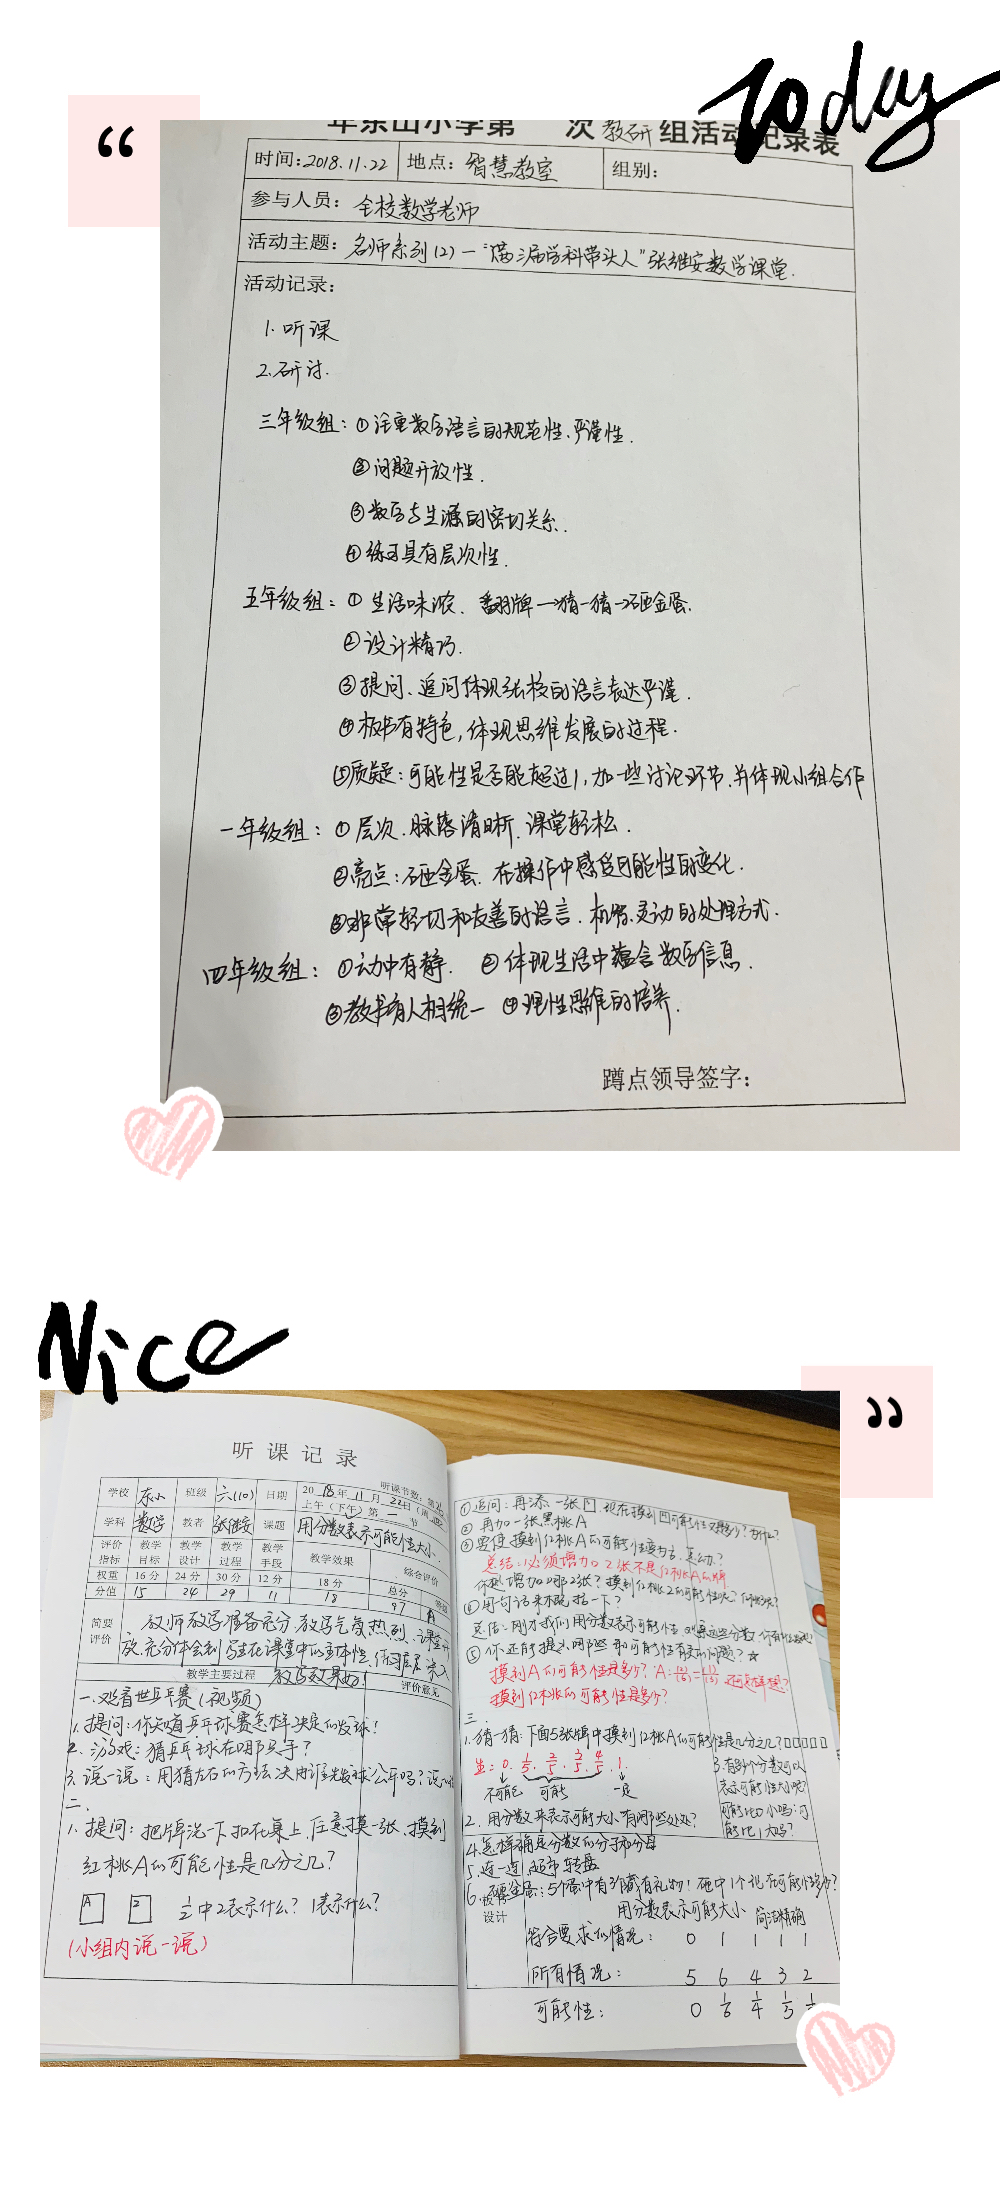 Today
“
年东山小学第 次教研组活动记录表
时间:2018.11.22 地点：智慧教室 组别：
参与人员：全校数学老师
活动主题：名师系列(2)一“第三届学科带头人”张继安数学课堂.
活动记录：
1. 听课
2. 研讨.
三年级组：①注重数学语言的规范性、严谨性.
②问题开放性.
③数学与生活的密切关系.
④练习具有层次性.
五年级组：①生活味浓、翻牌→猜一猜→砸金蛋.
②设计精巧.
③提问、追问体现张校的语言表达严谨.
④板书有特色,体现思维发展的过程.
⑤质疑：可能性是否能超过1,加一些讨论环节,并体现小组合作
一年级组：①层次、脉络清晰,课堂轻松.
②亮点：砸金蛋,在操作中感受可能性的变化.
③非常轻切和友善的语言.机智、灵动的处理方式.
四年级组：①动中有静. ②体现生活中蕴含数学信息.
③教书育人相统一 ④理性思维的培养.
蹲点领导签字：
Nice
”
听课记录
听课节数：第
学校 东小 班级 六(10) 日期 2018年11月22日(周
上午(下午)第一节
学科 数学 教者 张继安 课题 用分数表示可能性大小.
评价指标 教学目标 教学设计 教学过程 教学手段 教学效果 综合评价
权重 16分 24分 30分 12分 18分 总分 等级
分值 15 24 29 11 18 97 A
简要评价 教师教学准备充分,教学气氛热烈,课堂开
放,充分体会到学生在课堂中的主体性,练习层层深入
教学效果好!
教学主要过程 评价意见
一.观看世乒赛(视频)
1.提问：你知道乒乓球赛怎样决定的发球!
2.游戏：猜乒乓球在哪只手?
3.说一说：用猜左右的方法决定谁先发球公平吗?
二.
1.提问：把牌洗一下扣在桌上,任意摸一张,摸到
红桃A的可能性是几分之几?
A 2 ½中2表示什么?1表示什么?
(小组内说一说)
①追问：再添一张 现在摸到 可能性又是多少?为什么?
②再加一张黑桃A
③要使摸到红桃A的可能性变为 怎么办?
总结:必须增加2张不是红桃A的牌
你想增加哪2张?摸到红桃2的可能性呢?
④用一句话来概括一下?
总结:刚才我们用分数表示可能性
⑤你还能提出哪些和可能性有关的问题?☆
摸到A的可能性是多少?
摸到红桃的可能性是多少?
三.
1.猜一猜:下面5张牌中摸到红桃A的可能性是几分之几?□□□□□
生：0. 1/5. 2/5. 3/5. 4/5. 1.
不可能 可能 一定
3.有多少个分数可以
表示可能性大小呢?
可能比0小吗?可
能比1大吗?
2.用分数来表示可能大小有哪些好处?
4.怎样确定分数的分子和分母
5.连一连,超市转盘
6.砸金蛋:5个蛋中有3个藏有礼物!砸中1个礼的可能性多少?
板书设计 用分数表示可能大小 简洁精确
符合要求的情况： 0 1 1 1 1
所有情况： 5 6 4 3 2
可能性： 0 1/6 1/4 1/3